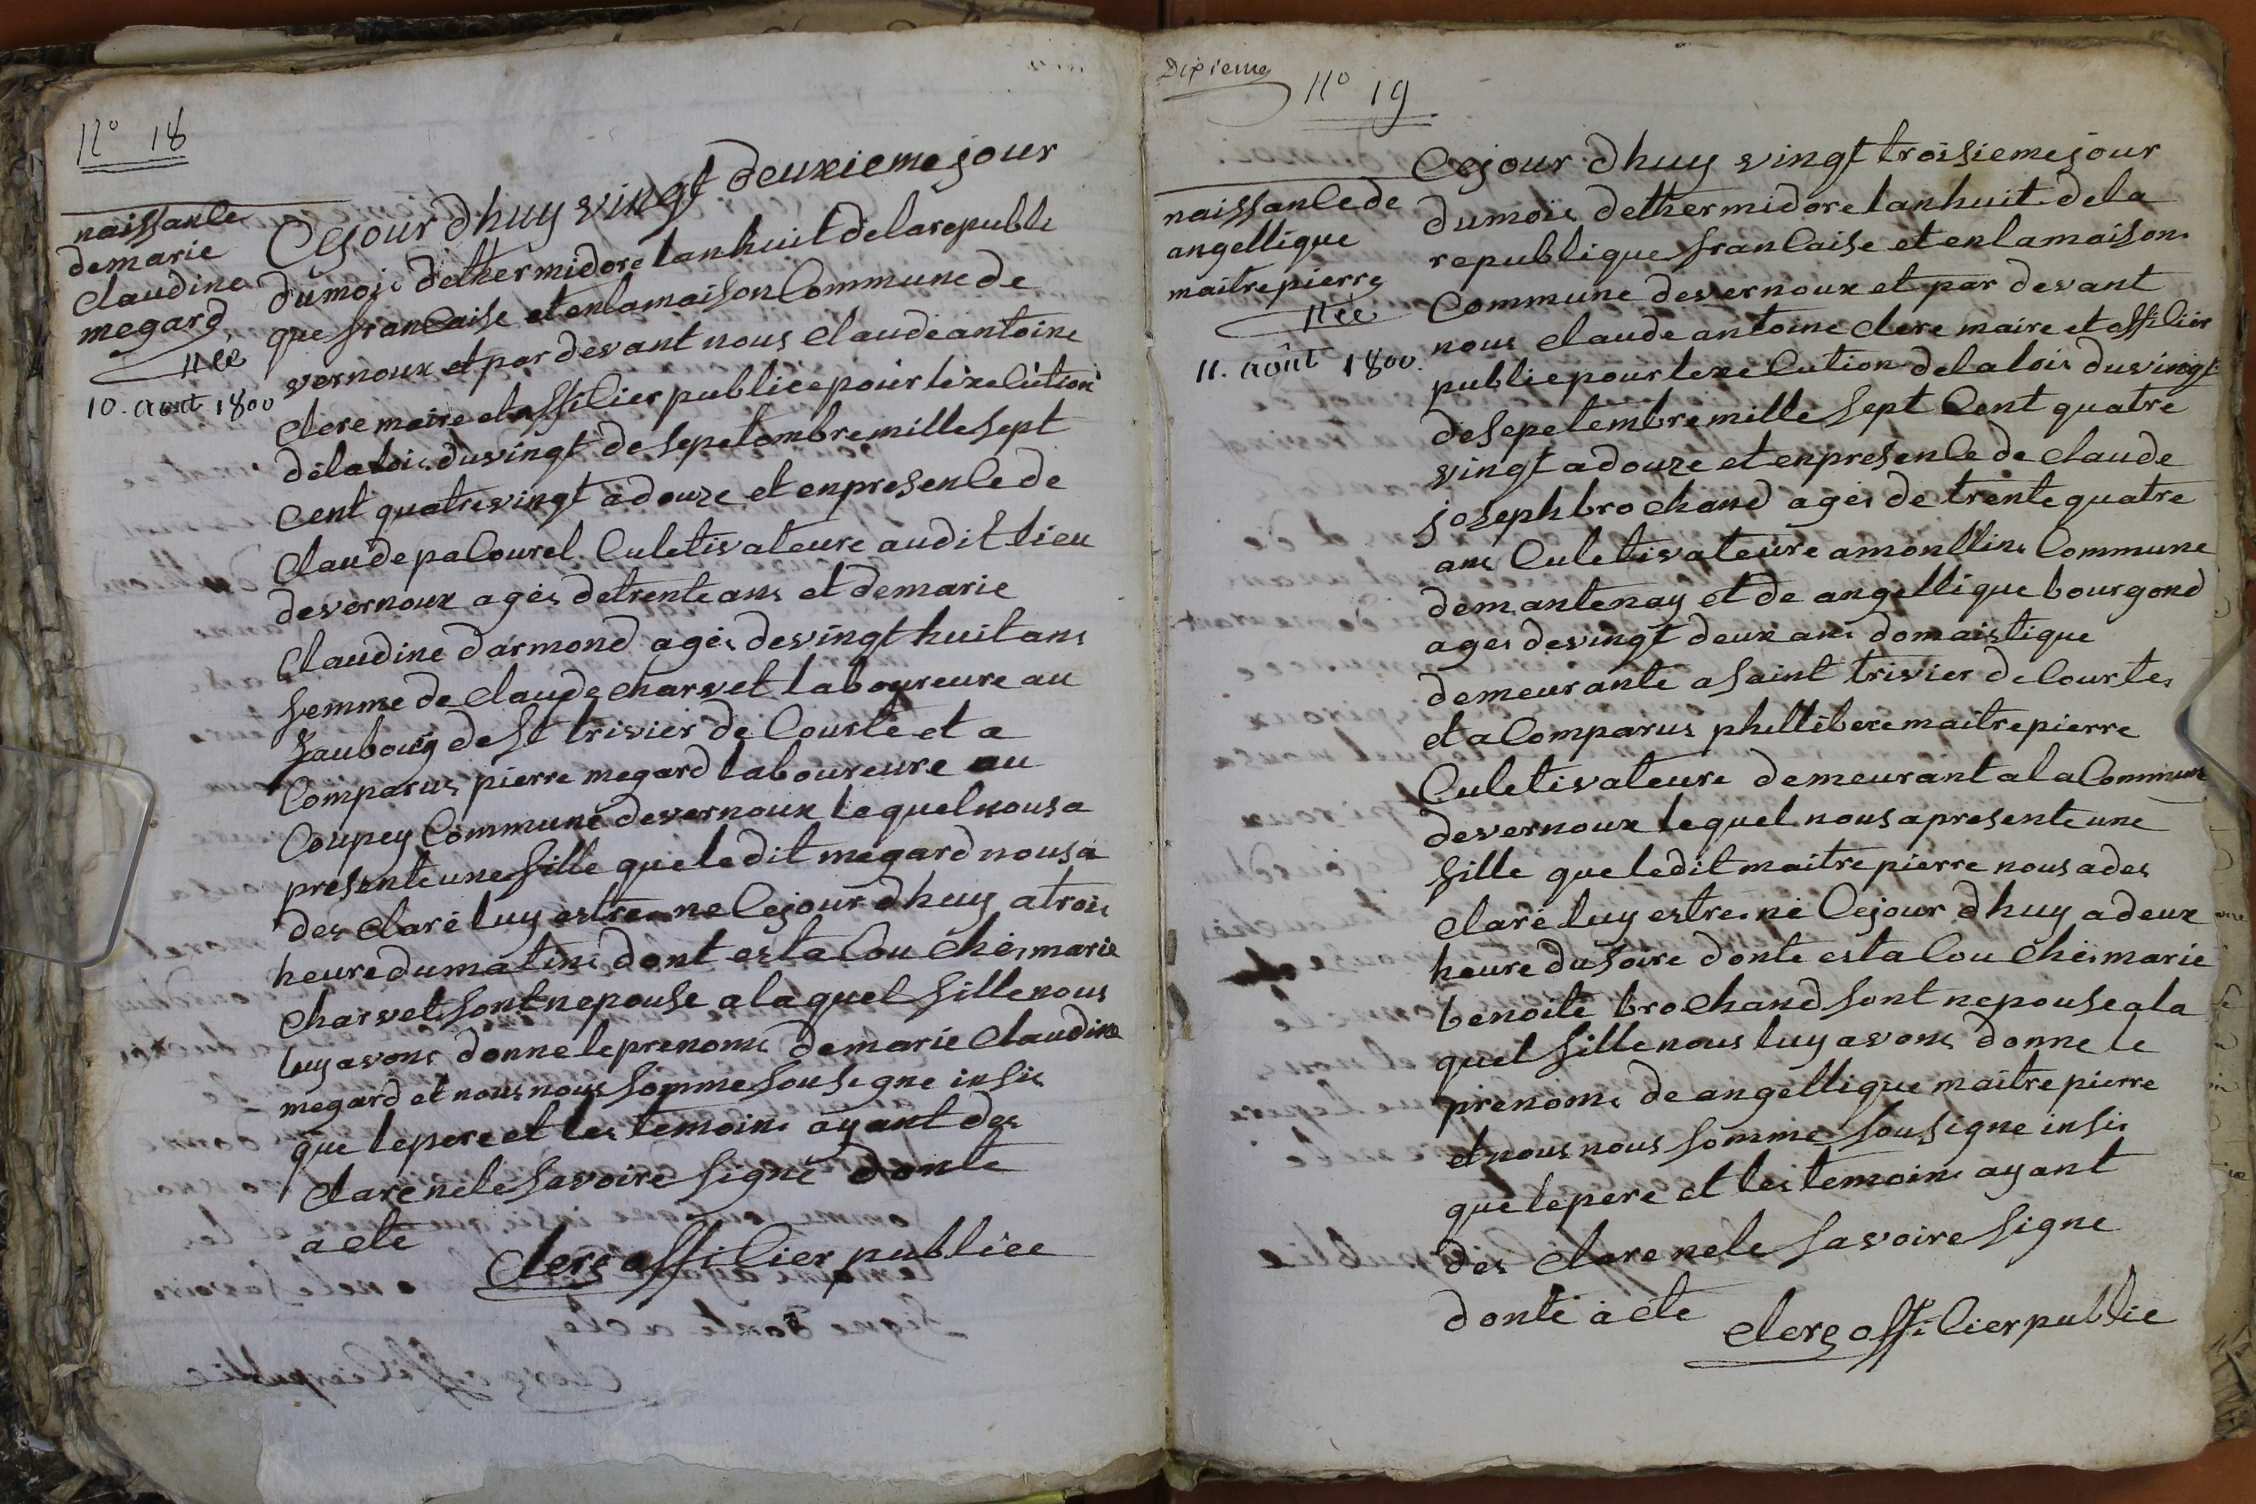 N° 18
naissance
demarie
claudine
megard
Née
10. aout 1800
Cejour dhuy vingt deuxieme jour
dumois dethermidore lanhuit delarepubli
que francaise et enlamaison Commune de
vernoux et par devant nous claude antoine
clere maire et officier publice pour lexecution
delalois duvingt de sepetembre mille sept
Cent quatrevingt adouze et enpresence de
claude pacourel Culetivateure audit lieu
devernoux ages detrente ans et demarie
claudine darmond ages devingt huit ans
femme de claude charvet laboureure au
faubourg de St trivier de Courte et a
Comparus pierre megard laboureure au
Coupey Commune devernoux lequel nous a
presente une fille que ledit megard nous a
des claré luy estre ne Cejour dhuy a trois
heure dumatins dont est acouchés marie
charvet sont nepouse a la quel fille nous
luy avons donne leprenoms demarie claudine
megard et nous nous somme sousigne insis
que lepere et les temoins ayant des
clare ne le savoire signé donte
acte
clerc officier publice
Dixieme
N° 19
naissance de
angellique
maitrepierre
Née
11. août 1800.
Cejour dhuy vingt troisieme jour
dumois dethermidore lanhuit dela
republique francaise et enlamaison
Commune devernoux et par devant
nous claude antoine clere maire et officier
publicpour lexecution delalois duvingt
desepetembre mille sept Cent quatre
vingt adouze et enpresence de claude
joseph brochand agés de trente quatre
ans Culetivateure amontlins Commune
demantenay et de angellique bourgond
ages devingt deux ans domaistique
demeurante a saint trivier deCourtes
et aComparus phillibere maitrepierre
Culetivateure demeurant alaCommune
devernoux lequel nous apresente une
fille que ledit maitre pierre nous a des
clare luy estre né Cejour dhuy adeux
heure dusoire donte est acouchés marie
benoite brochand sont nepouse ala
quel fille nous luy avons donne le
prenoms de angellique maitre pierre
et nous nous somme sousigne insis
que lepere et les temoins ayant
des clare ne le savoire signe
donte acte
clerc officier public